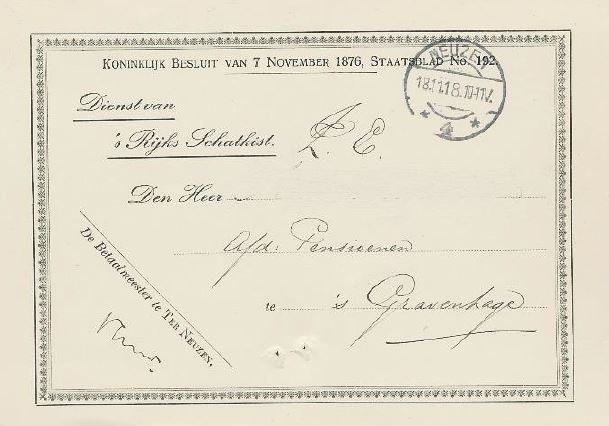 KONINKLIJK BESLUIT VAN 7 NOVEMBER 1876, STAATSBLAD No. 192.
NEUZEN
18.11.18.10-11V.
* 4 *
Dienst van
's Rijks Schatkist.
Z. E.
Den Heer
Afd: Pensioenen
te 's Gravenhage
De Betaalmeester te TER NEUZEN.